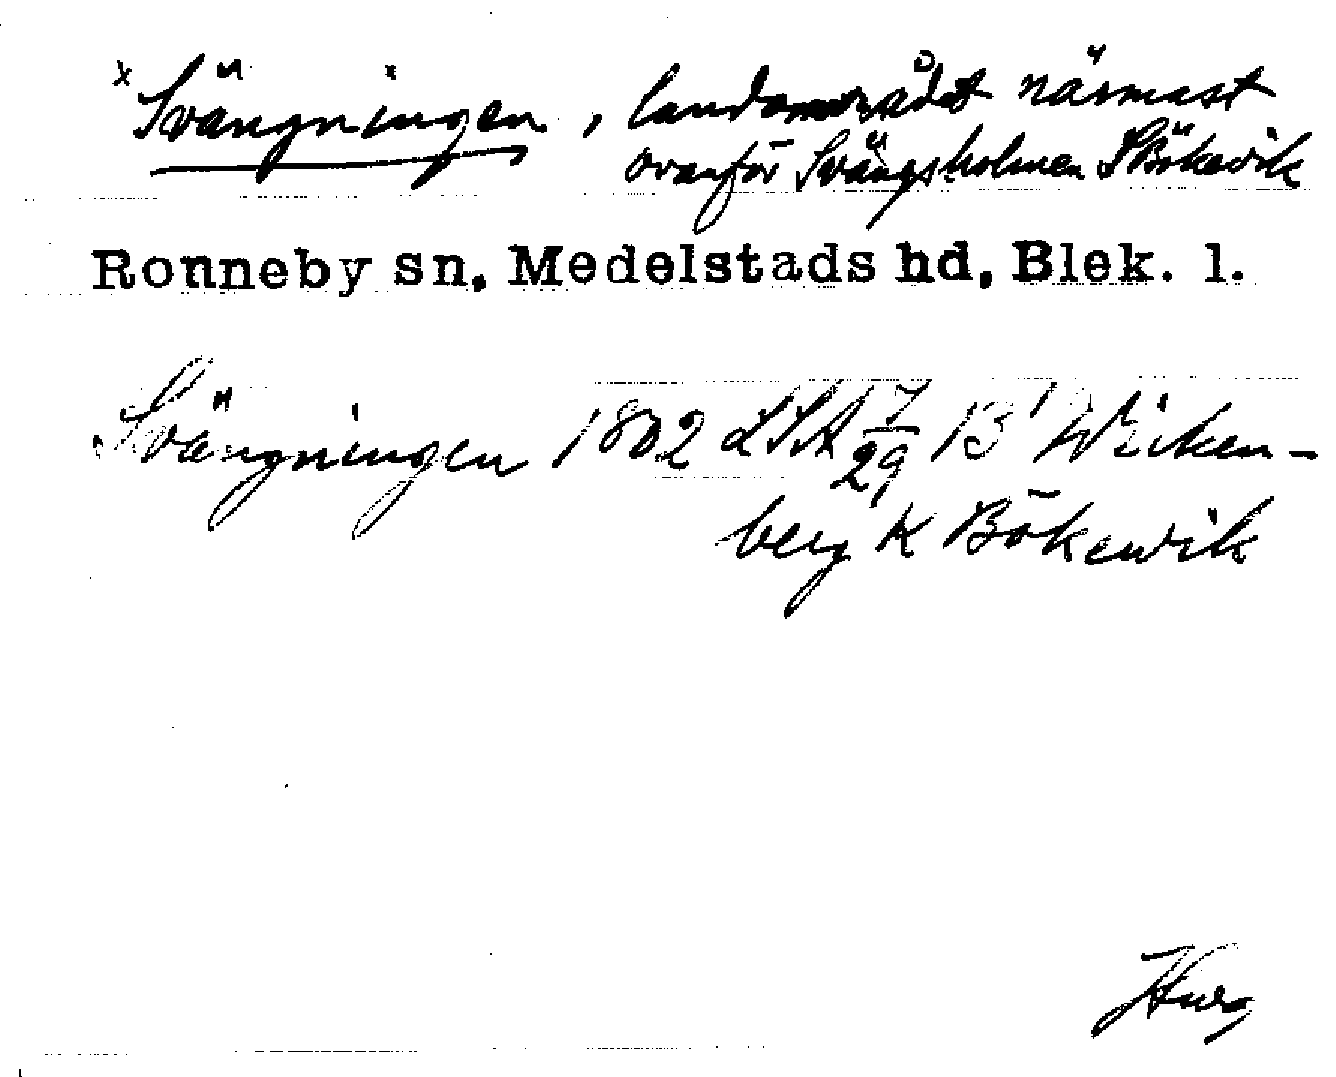 x Svängningen, landområdet närmast
ovanför Svängsholmen S Bökevik
Ronneby sn, Medelstads hd, Blek. l.
Svängningen 1802 LSA 7/29 B' Wirken-
berg K Bökewik